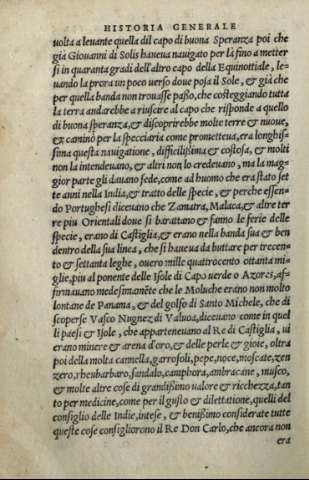 HISTORIA GENERALE
uolta a leuante quella dil capo di buona Speranza poi che
già Giouanni di Solis haueua nauigato per là fino a metter
si in quaranta gradi dell'altro capo della Equinottiale, le-
uando la prora un poco uerso doue posa il Sole, & già che
per quella banda non trouasse paßo, che costeggiando tutta
la terra andarebbe a riuscire al capo che risponde a quello
di buona speranza, & discoprirebbe molte terre & nuoue,
& camino per la specciaria come prometteua, era longhis-
sima questa nauigatione, difficilißima & costosa, & molti
non la intendeuano, & altri non lo credeuano, ma la mag-
gior parte gli dauano fede, come ad huomo che era stato set
te anni nella India, & tratto delle specie, & perche essen-
do Portughesi diceuano che Zamatra, Malaca, & altre ter
re piu Orientali doue si barattano & fanno le ferie delle
specie, erano di Castiglia, & erano nella banda sua & ben
dentro della sua linea, che si haueua da buttare per trecen-
to & settanta leghe, ouero mille quattrocento ottanta mi-
glie, piu al ponente delle Isole di Capo uerde o Azores, af-
firmauano medesimamēte che le Moluche erano non molto
lontane de Panama, & del golfo di Santo Michele, che di
scoperse Vasco Nugnez di Valuoa, diceuano come in quel
li paesi & Isole, che apparteneuano al Re di Castiglia, ui
erano minere & arena d'oro, & delle perle & gioie, oltra
poi della molta cannella, garrofoli, pepe, noce, moscate, zen
zero, rheubarbaro, sandalo, camphora, ambracane, musco,
& molte altre cose di grandißimo ualore & ricchezza, tan
to per medicine, come per il gusto & dilettatione, quelli del
consiglio delle Indie, intese, & benißimo considerate tutte
queste cose consigliorono il Re Don Carlo, che ancora non
era